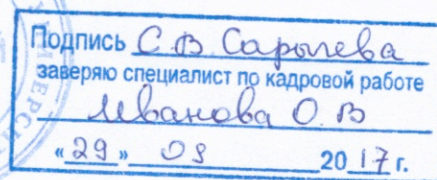 Подпись С.В. Сарычева
заверяю специалист по кадровой работе
Иванова О.В
«29» 09 2017 г.